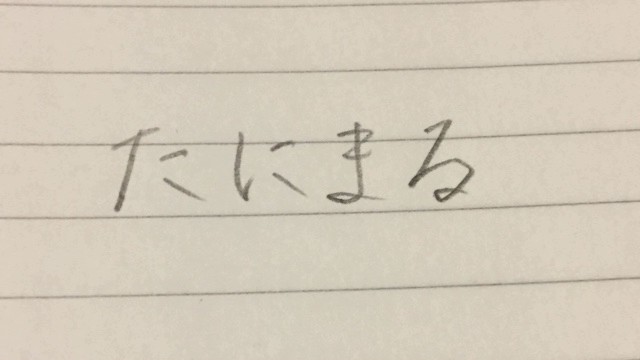 たにまる